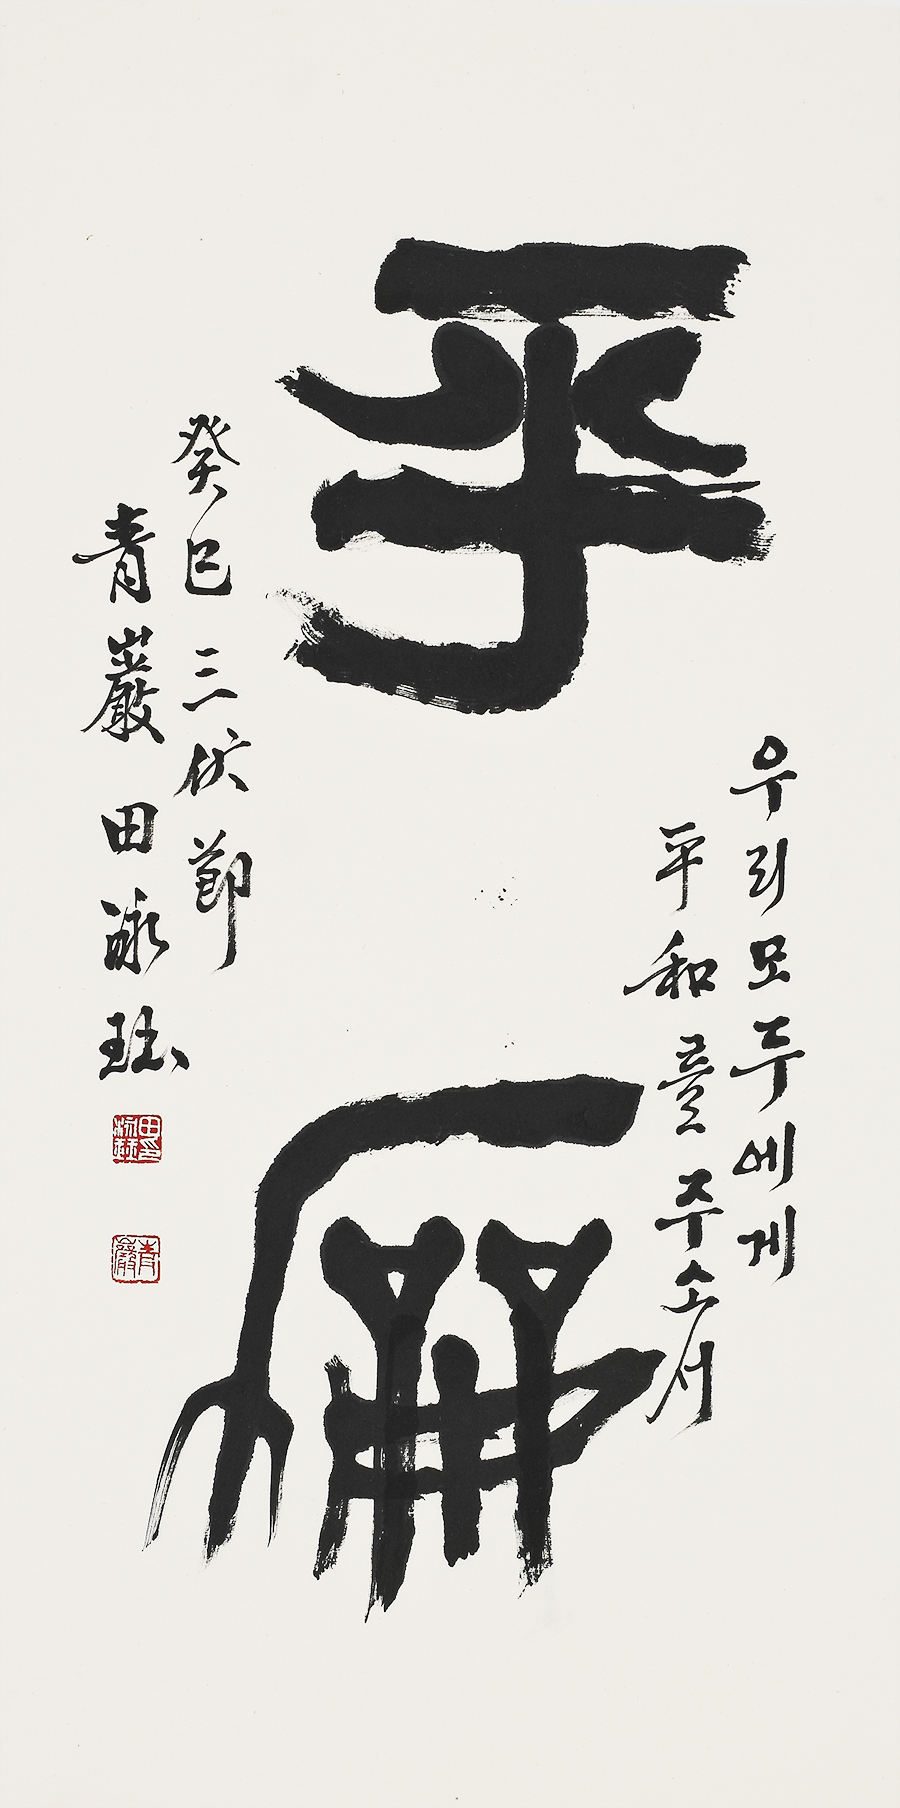 平龢
우리모두에게
平和를주소서
癸巳三伏節
青巖田泳
青巖